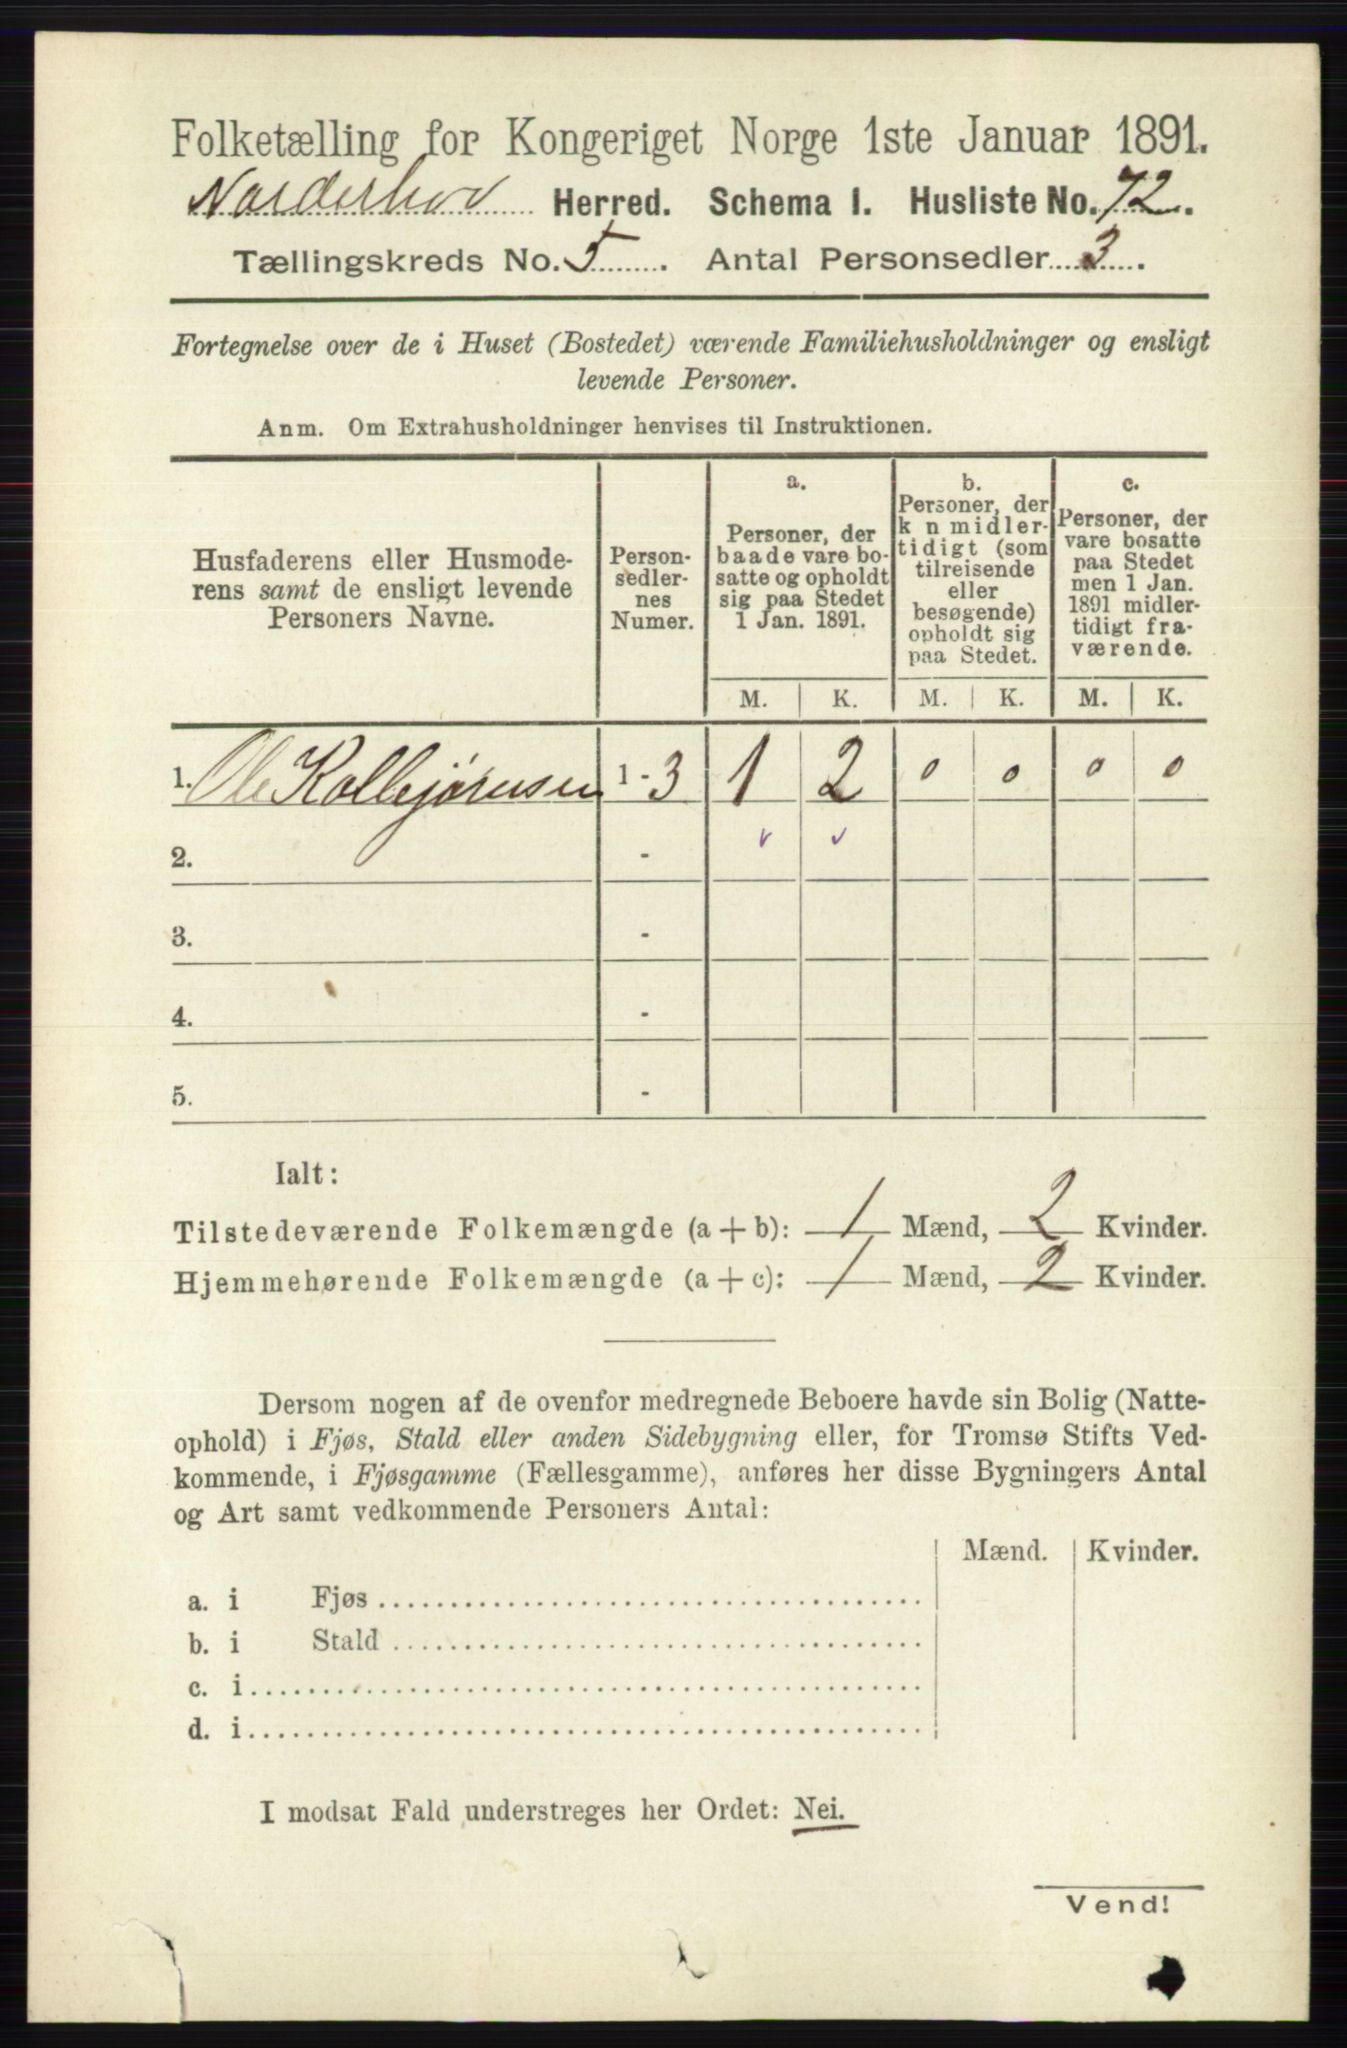 Folketælling for Kongeriget Norge 1ste Januar 1891.
Norderhov Herred. Schema I. Husliste No. 72.
Tællingskreds No. 5. Antal Personsedler 3.
Fortegnelse over de i Huset (Bostedet) værende Familiehusholdninger og ensligt
levende Personer.
Anm. Om Extrahusholdninger henvises til Instruktionen.
Husfaderens eller Husmode-
rens samt de ensligt levende
Personers Navne.
Person-
sedler-
nes
Numer.
a.
Personer, der
baade vare bo-
satte og opholdt
sig paa Stedet
1 Jan. 1891.
b.
Personer, der
k n midler-
tidigt (som
tilreisende
eller
besøgende)
opholdt sig
paa Stedet.
c.
Personer, der
vare bosatte
paa Stedet
men 1 Jan.
1891 midler-
tidigt fra-
værende.
M. K. M. K. M. K.
1. Ole Kolbjørnsen 1-3 1 2 0 0 0 0
2. -
3. -
4. -
5. -
Ialt:
Tilstedeværende Folkemængde (a + b): 1 Mænd, 2 Kvinder.
Hjemmehørende Folkemængde (a + c): 1 Mænd, 2 Kvinder.
Dersom nogen af de ovenfor medregnede Beboere havde sin Bolig (Natte-
ophold) i Fjøs, Stald eller anden Sidebygning eller, for Tromsø Stifts Ved-
kommende, i Fjøsgamme (Fællesgamme), anføres her disse Bygningers Antal
og Art samt vedkommende Personers Antal:
Mænd. Kvinder.
a. i Fjøs
b. i Stald
c. i
d. i
I modsat Fald understreges her Ordet: Nei.
Vend!